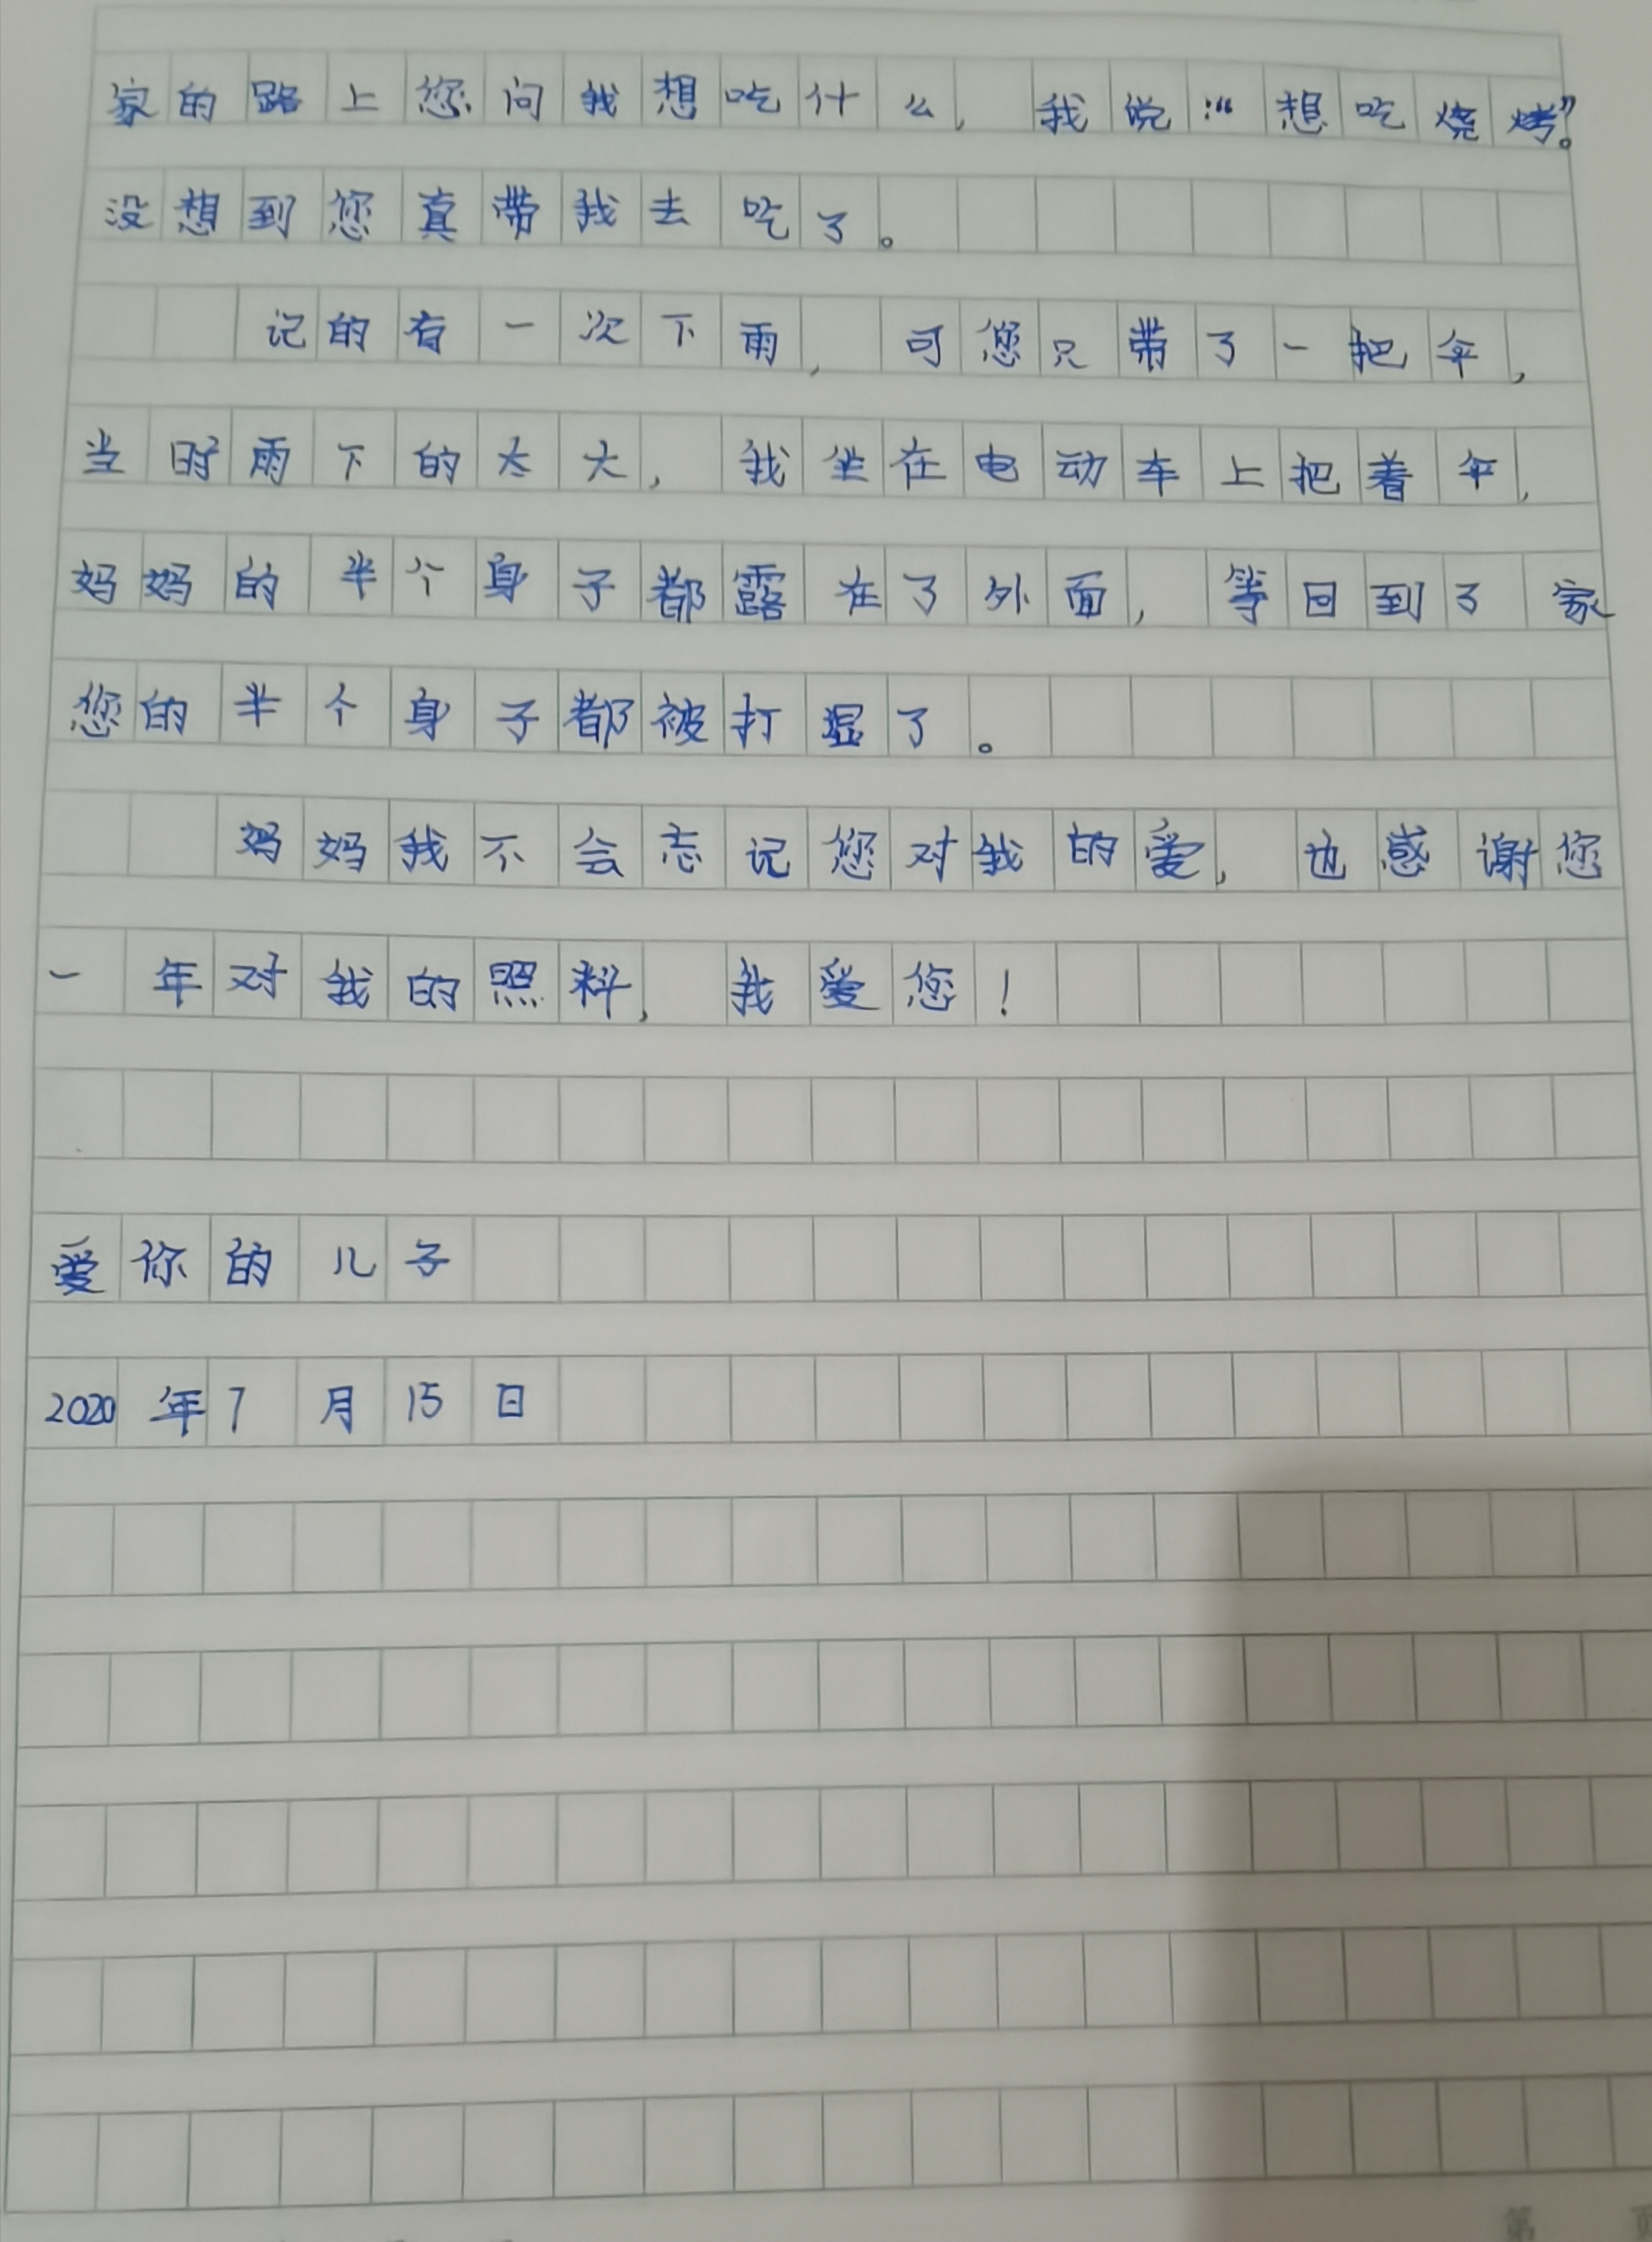 家的路上您问我想吃什么，我说：“想吃烧烤”。
没想到您真带我去吃了。
记的有一次下雨，可您只带了一把伞，
当时雨下的太大，我坐在电动车上把着伞，
妈妈的半个身子都露在了外面，等回到了家
您的半个身子都被打湿了。
妈妈我不会忘记您对我的爱，也感谢您
一年对我的照料，我爱您！
爱你的儿子
2020年7月15日
第 页